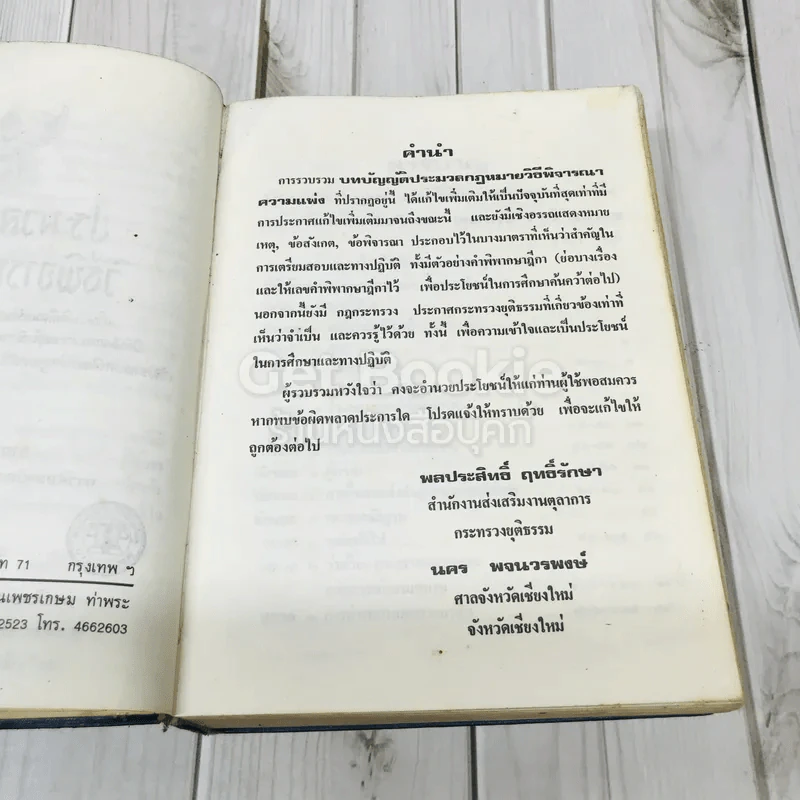 ท 71 กรุงเทพ ฯ
นเพชรเกษม ท่าพระ
2523 โทร. 4662603
คำนำ
การรวบรวม บทบัญญัติประมวลกฎหมายวิธีพิจารณา
ความแพ่ง ที่ปรากฏอยู่นี้ ได้แก้ไขเพิ่มเติมให้เป็นปัจจุบันที่สุดเท่าที่มี
การประกาศแก้ไขเพิ่มเติมมาจนถึงขณะนี้ และยังมีเชิงอรรถแสดงหมาย
เหตุ, ข้อสังเกต, ข้อพิจารณา ประกอบไว้ในบางมาตราที่เห็นว่าสำคัญใน
การเตรียมสอบและทางปฏิบัติ ทั้งมีตัวอย่างคำพิพากษาฎีกา (ย่อบางเรื่อง
และให้เลขคำพิพากษาฎีกาไว้ เพื่อประโยชน์ในการศึกษาค้นคว้าต่อไป)
นอกจากนี้ยังมี กฎกระทรวง ประกาศกระทรวงยุติธรรมที่เกี่ยวข้องเท่าที่
เห็นว่าจำเป็น และควรรู้ไว้ด้วย ทั้งนี้ เพื่อความเข้าใจและเป็นประโยชน์
ในการศึกษาและทางปฏิบัติ
ผู้รวบรวมหวังใจว่า คงจะอำนวยประโยชน์ให้แก่ท่านผู้ใช้พอสมควร
หากพบข้อผิดพลาดประการใด โปรดแจ้งให้ทราบด้วย เพื่อจะแก้ไขให้
ถูกต้องต่อไป
พลประสิทธิ์ ฤทธิ์รักษา
สำนักงานส่งเสริมงานตุลาการ
กระทรวงยุติธรรม
นคร พจนวรพงษ์
ศาลจังหวัดเชียงใหม่
จังหวัดเชียงใหม่
Get Bookie
ร้านหนังสือบุคกี้